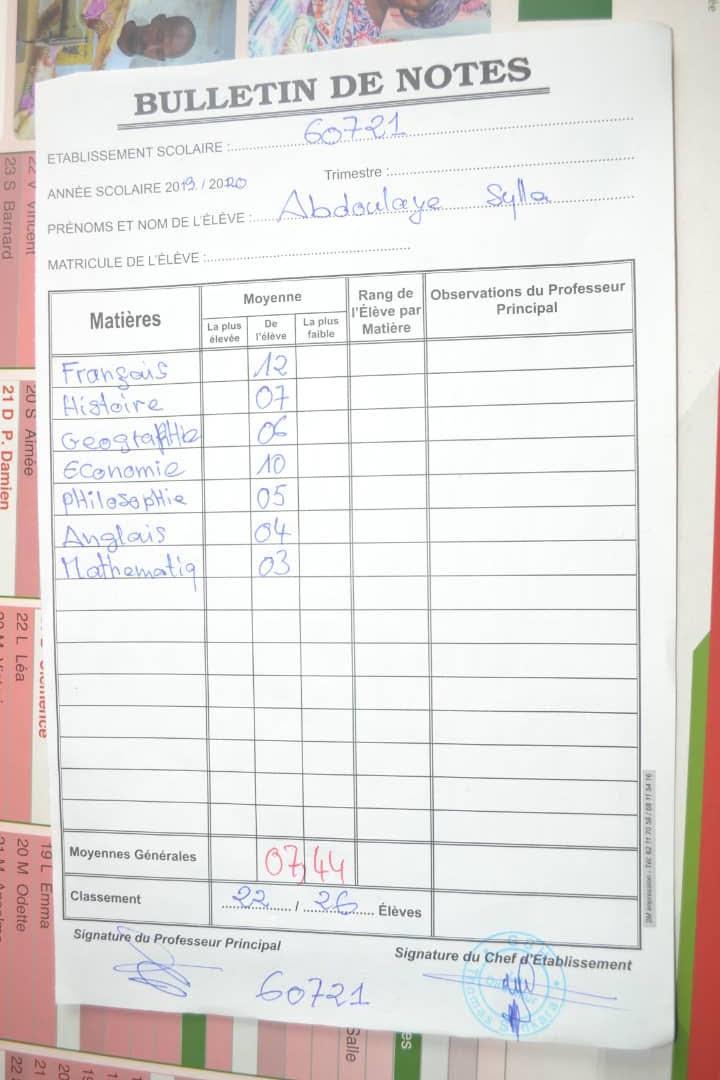 BULLETIN DE NOTES
ETABLISSEMENT SCOLAIRE : 60721
ANNÉE SCOLAIRE 2019 / 2020 Trimestre :
PRÉNOMS ET NOM DE L'ÉLÈVE : Abdoulaye Sylla
MATRICULE DE L'ÉLÈVE :
Matières Moyenne Rang de l'Élève par Matière Observations du Professeur Principal
La plus élevée De l'élève La plus faible
Français 12
Histoire 07
Geographie 06
Economie 10
PHilosopHie 05
Anglais 04
Mathematiq 03
Moyennes Générales 07,44
Classement 22 / 26 Élèves
Signature du Professeur Principal Signature du Chef d'Établissement
60721
Thomas Sankara
23 S Barnard
22 V Vincent
21 D P. Damien
20 S Aimée
22 L Léa
Clémence
19 L Emma
20 M Odette
Salle